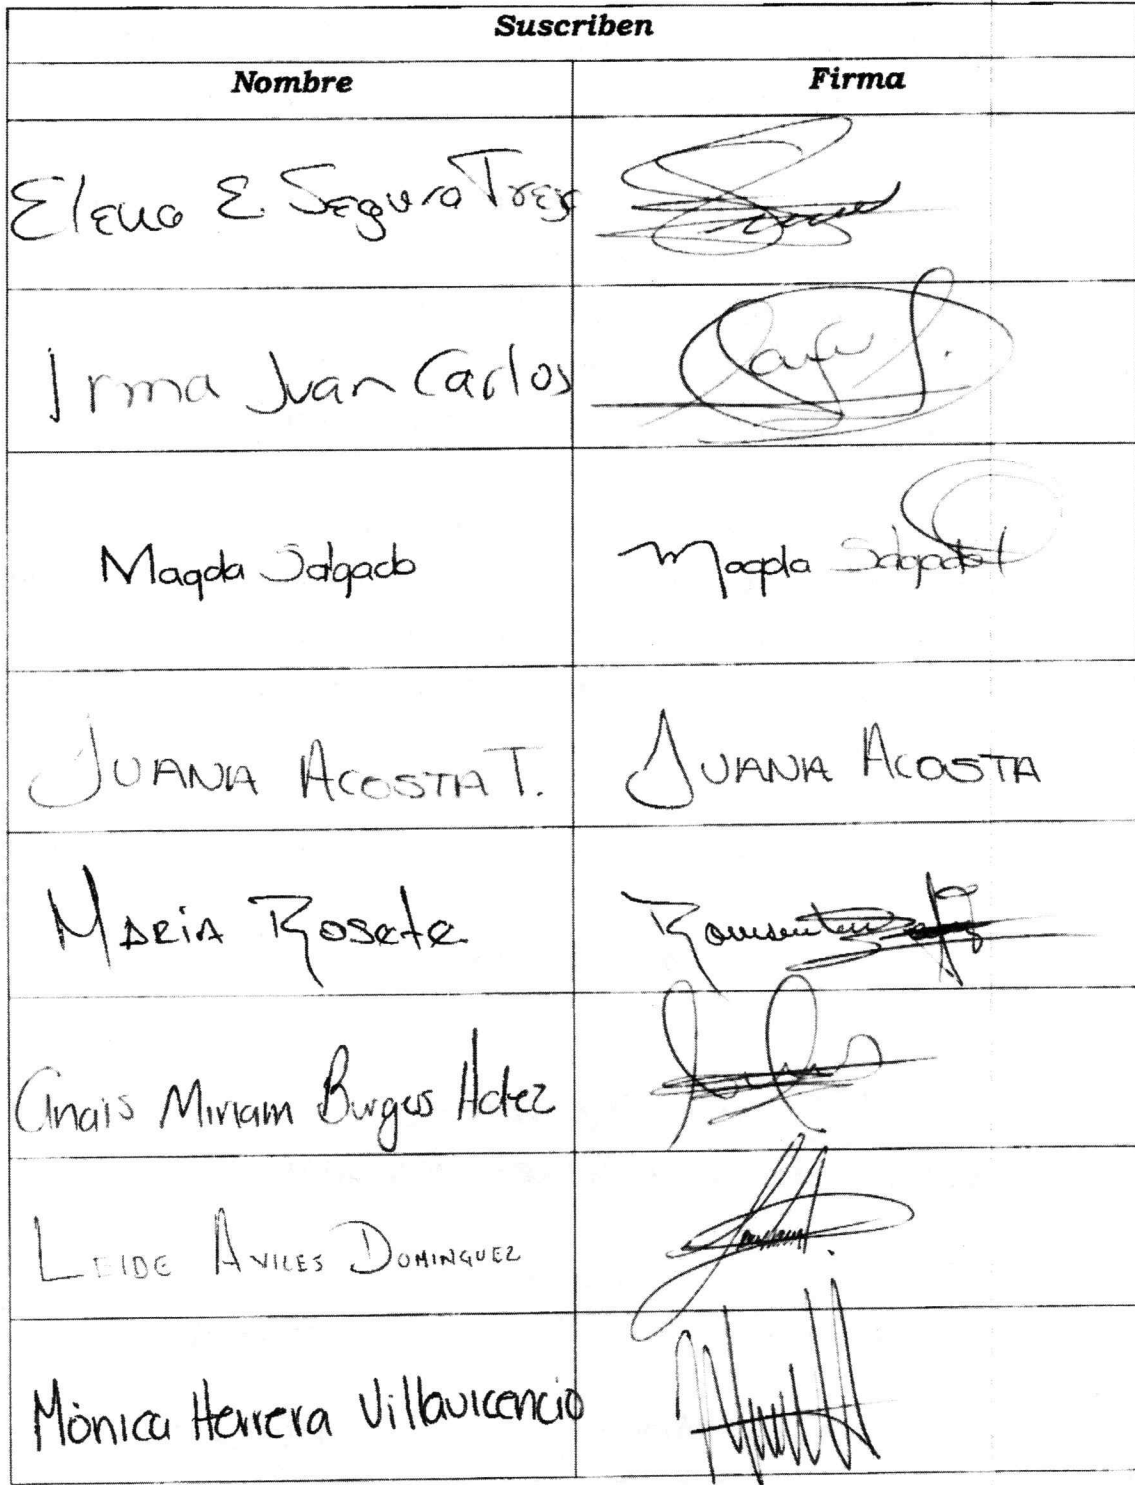 Suscriben
Nombre Firma
Elena E. Segura Trejo
Irma Juan Carlos
Magda Salgado Magda Salgado
JUANA ACOSTA T. JUANA ACOSTA
MARIA Rosete
Anais Miriam Burgos Hdez
LEIDE AVILES DOMINGUEZ
Mónica Herrera Villavicencio